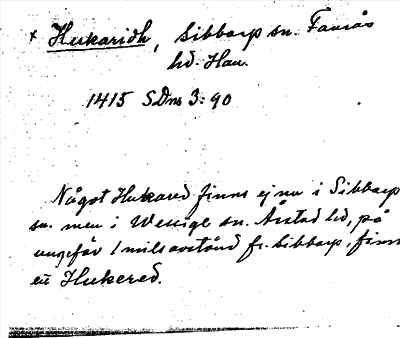 x Hukaridh, Sibbarp sn. Faurås
hd. Hall.
1415 SDns 3:90
Något Hukared finns ej nu i Sibbarp
sn. men i Wessige sn. Årstad hd, på
ungefär 1 mils avstånd fr. Sibbarp, finns
ett Hukered.